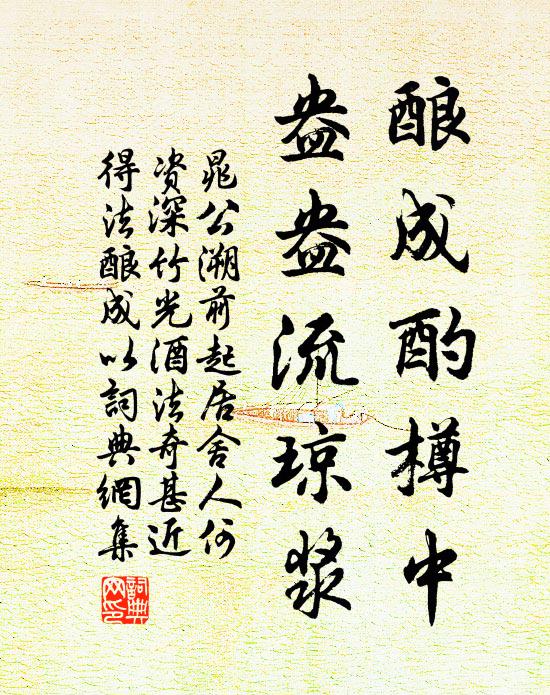 酿成酌樽中
盎盎流琼浆
晁公溯前起居舍人何
资深竹光酒法奇甚近
得法酿成以詞典網集
詞典
网印